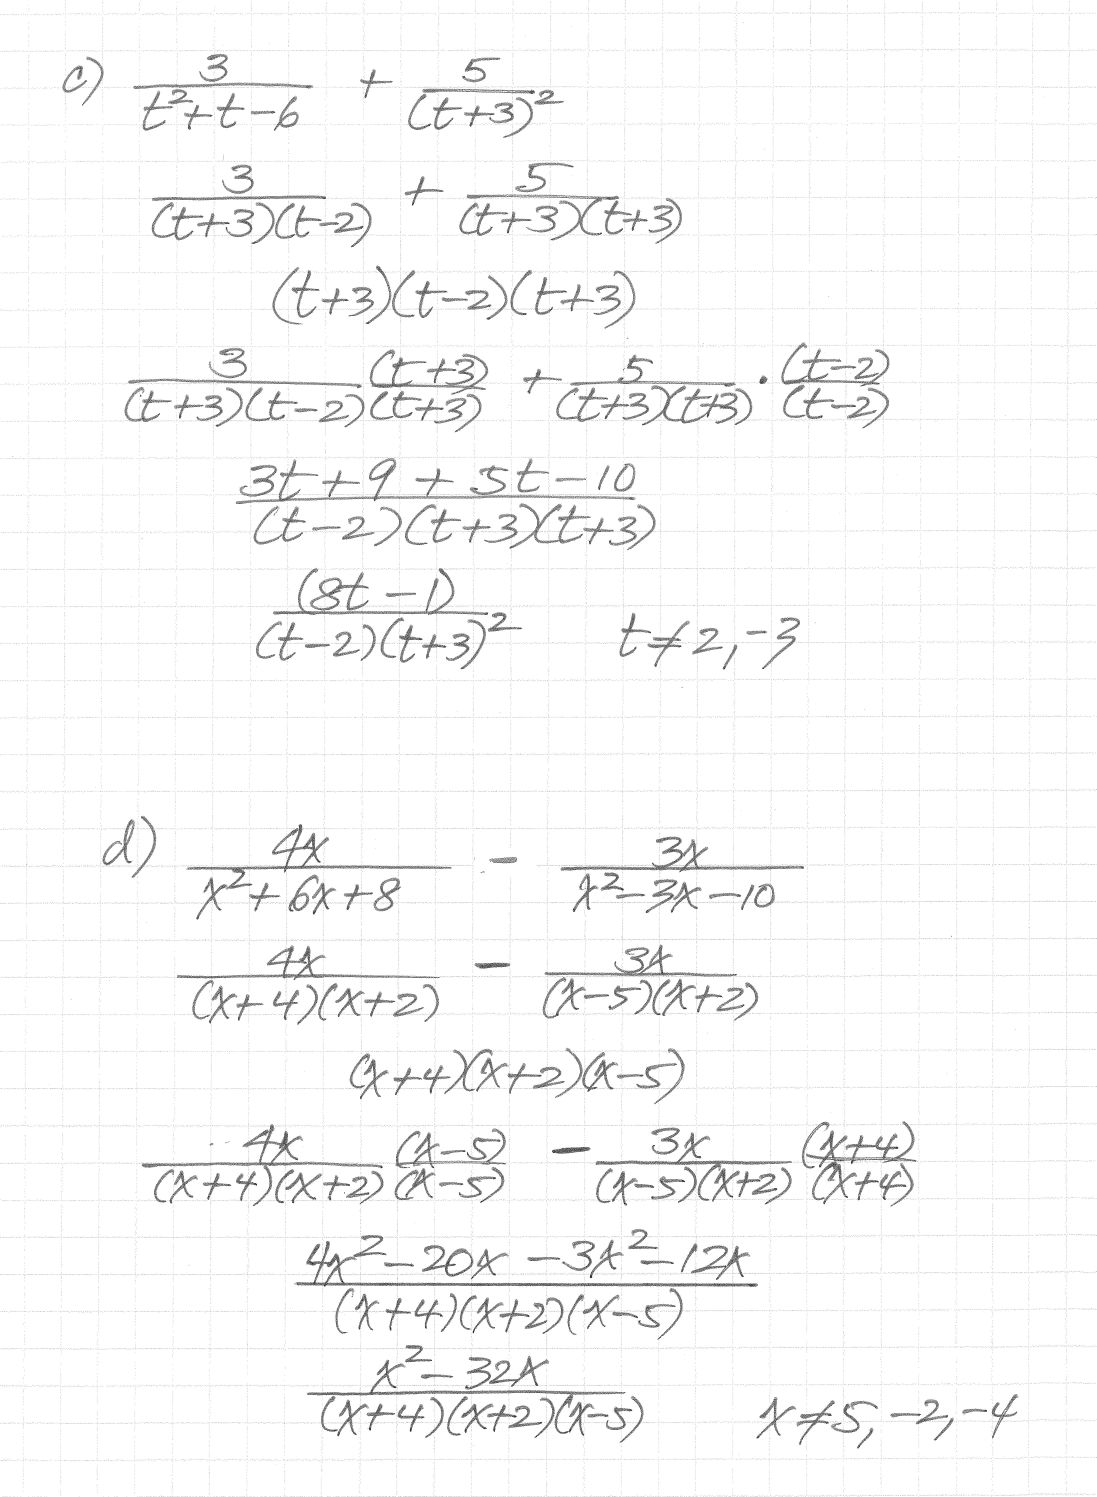 c) 3/(t²+t-6) + 5/(t+3)²
3/((t+3)(t-2)) + 5/((t+3)(t+3))
(t+3)(t-2)(t+3)
3/((t+3)(t-2)) (t+3)/(t+3) + 5/((t+3)(t+3)) · (t-2)/(t-2)
(3t+9+5t-10)/((t-2)(t+3)(t+3))
(8t-1)/((t-2)(t+3)²) t≠2,-3
d) 4x/(x²+6x+8) - 3x/(x²-3x-10)
4x/((x+4)(x+2)) - 3x/((x-5)(x+2))
(x+4)(x+2)(x-5)
4x/((x+4)(x+2)) (x-5)/(x-5) - 3x/((x-5)(x+2)) (x+4)/(x+4)
(4x²-20x-3x²-12x)/((x+4)(x+2)(x-5))
(x²-32x)/((x+4)(x+2)(x-5)) x≠5,-2,-4